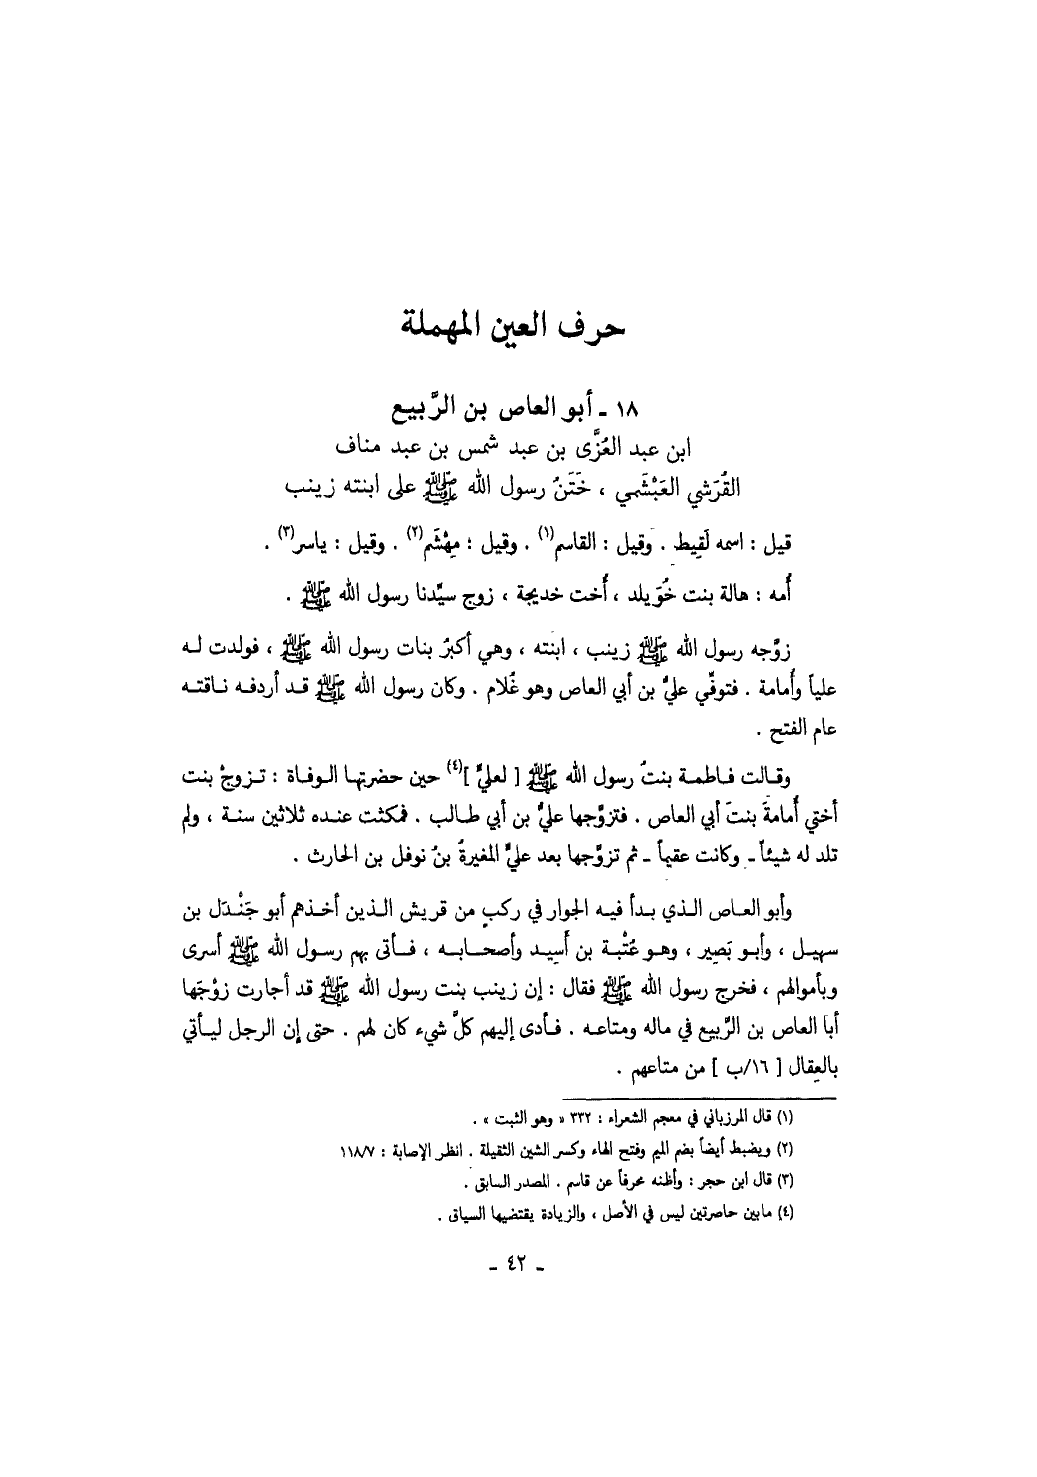 حرف العين المهملة
١٨ ـ أبو العاص بن الرَّبيع
ابن عبد العُزَّى بن عبد شمس بن عبد مناف
القُرَشي العَبْشَمي ، خَتَنُ رسول الله ﷺ على ابنته زينب
قيل : اسمه لَقِيط . وقيل : القاسم(١) . وقيل : مِهْشَم(٢) . وقيل : ياسر(٣) .
أُمه : هالة بنت خُوَيلد ، أُخت خديجة ، زوج سيِّدنا رسول الله ﷺ .
زوَّجه رسول الله ﷺ زينب ، ابنته ، وهي أكبرُ بنات رسول الله ﷺ ، فولدت له
علياً وأُمامة . فتوفِّي عليُّ بن أبي العاص وهو غُلام . وكان رسول الله ﷺ قد أردفه ناقته
عام الفتح .
وقالت فاطمة بنتُ رسول الله ﷺ [ لعليٍّ ](٤) حين حضرتها الوفاة : تزوجْ بنت
أختي أُمامةَ بنتَ أبي العاص . فتزوَّجها عليُّ بن أبي طالب . فمكثت عنده ثلاثين سنة ، ولم
تلد له شيئاً ـ وكانت عقيماً ـ ثم تزوَّجها بعد عليٍّ المغيرةُ بنُ نوفل بن الحارث .
وأبو العاص الذي بدأ فيه الجوار في ركبٍ من قريش الذين أخذهم أبو جَنْدَل بن
سهيل ، وأبو بَصِير ، وهو عُتْبة بن أَسِيد وأصحابه ، فأتى بهم رسول الله ﷺ أسرى
وبأموالهم ، فخرج رسول الله ﷺ فقال : إن زينب بنت رسول الله ﷺ قد أجارت زوْجَها
أبا العاص بن الرَّبيع في ماله ومتاعه . فأدى إليهم كلَّ شيء كان لهم . حتى إن الرجل ليأتي
بالعِقال [ ١٦/ب ] من متاعهم .
(١) قال المرزباني في معجم الشعراء : ٣٣٢ « وهو الثبت » .
(٢) ويضبط أيضاً بضم الميم وفتح الهاء وكسر الشين الثقيلة . انظر الإصابة : ١١٨/٧
(٣) قال ابن حجر : وأظنه محرفاً عن قاسم . المصدر السابق .
(٤) مابين حاصرتين ليس في الأصل ، والزيادة يقتضيها السياق .
ـ ٤٢ ـ